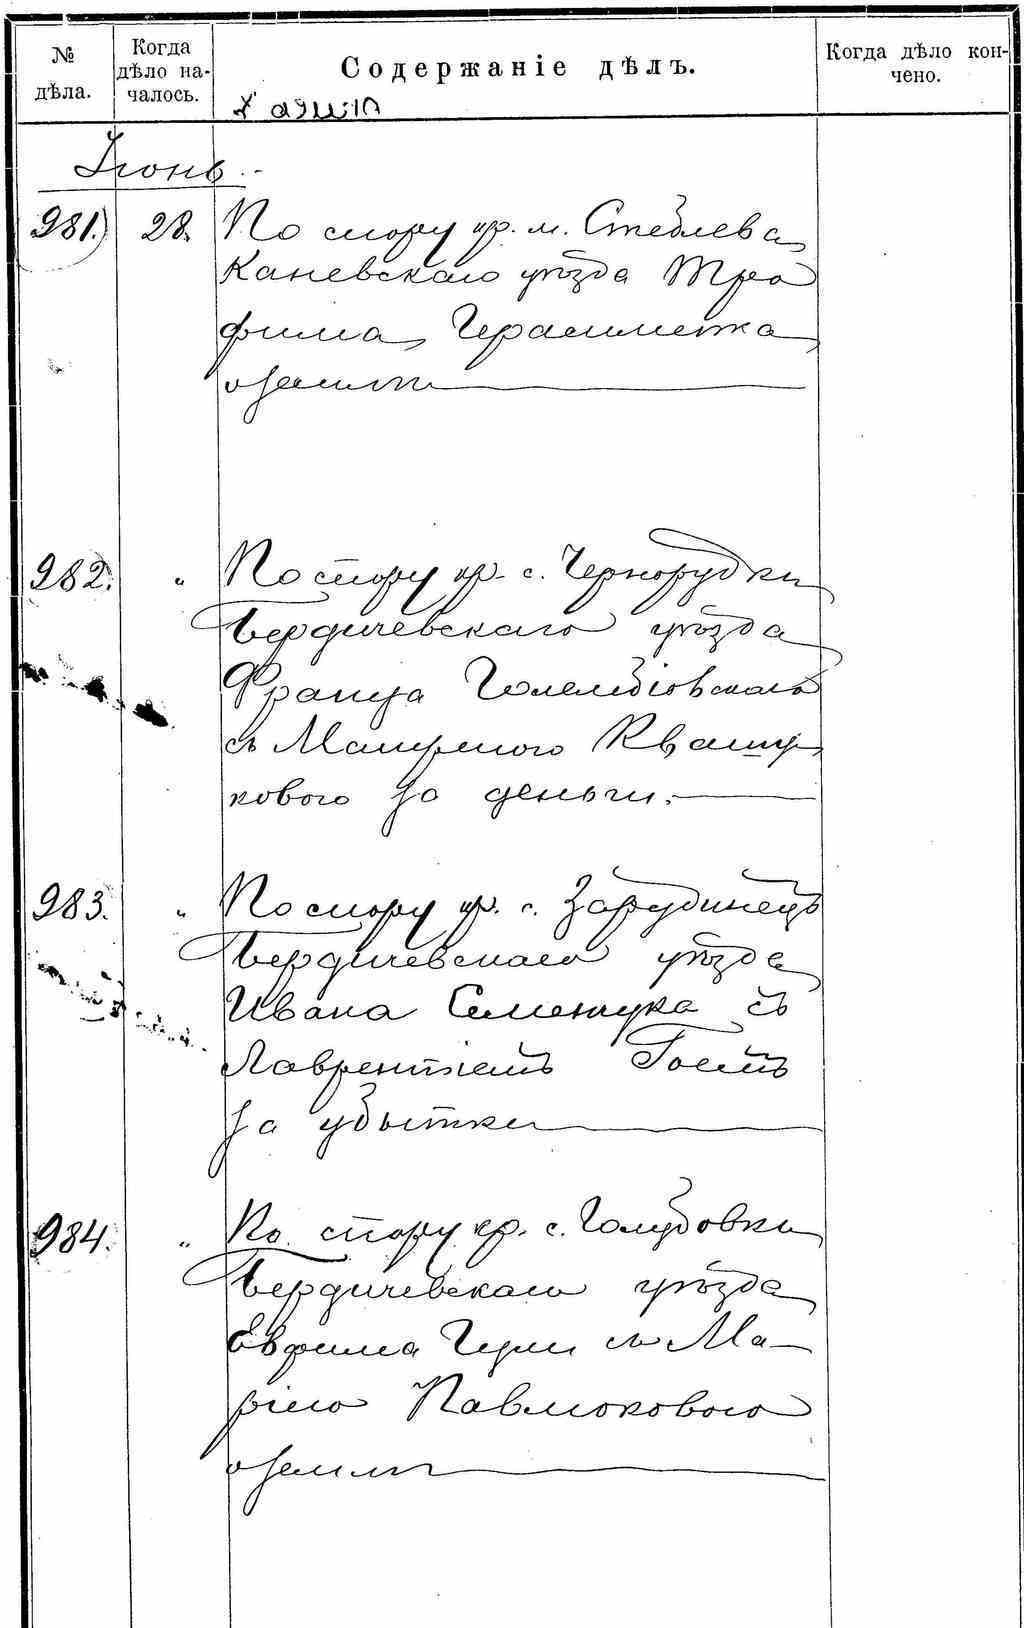 № дѣла.
Когда дѣло на-
чалось.
Содержаніе дѣлъ.
Когда дѣло кон-
чено.
Іюнь
981. 28. По спору кр. м. Стеблева
Каневскаго уѣзда Тро
фима Герасименка
о землѣ
982. " По спору кр. с. Чернорудки
Бердичевскаго уѣзда
Франца Голембіовскаго
съ Матреною Кващу
ковою за деньги.
983. " По спору кр. с. Зарудинецъ
Бердичевскаго уѣзда
Ивана Семенчука съ
Лаврентіемъ Гоемъ
за убытки
984. " По спору кр. с. Голубовки
Бердичевскаго уѣзда
Евфима съ Ма-
ріею Павлюковою
о землѣ